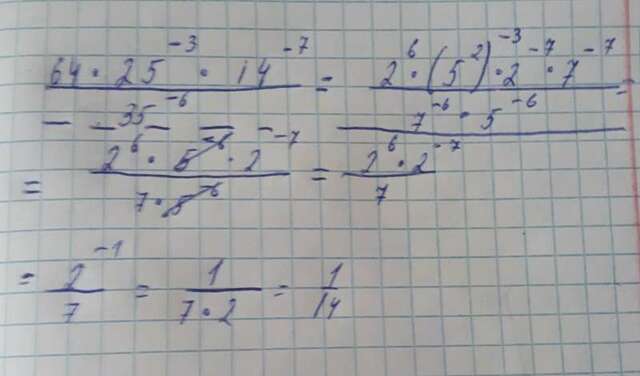 64 · 25⁻³ · 14⁻⁷ / 35⁻⁶ = 2⁶ · (5²)⁻³ · 2⁻⁷ · 7⁻⁷ / 7⁻⁶ · 5⁻⁶ =
= 2⁶ · 5⁻⁶ · 2⁻⁷ / 7 · 5⁻⁶ = 2⁶ · 2⁻⁷ / 7
= 2⁻¹ / 7 = 1 / 7 · 2 = 1 / 14